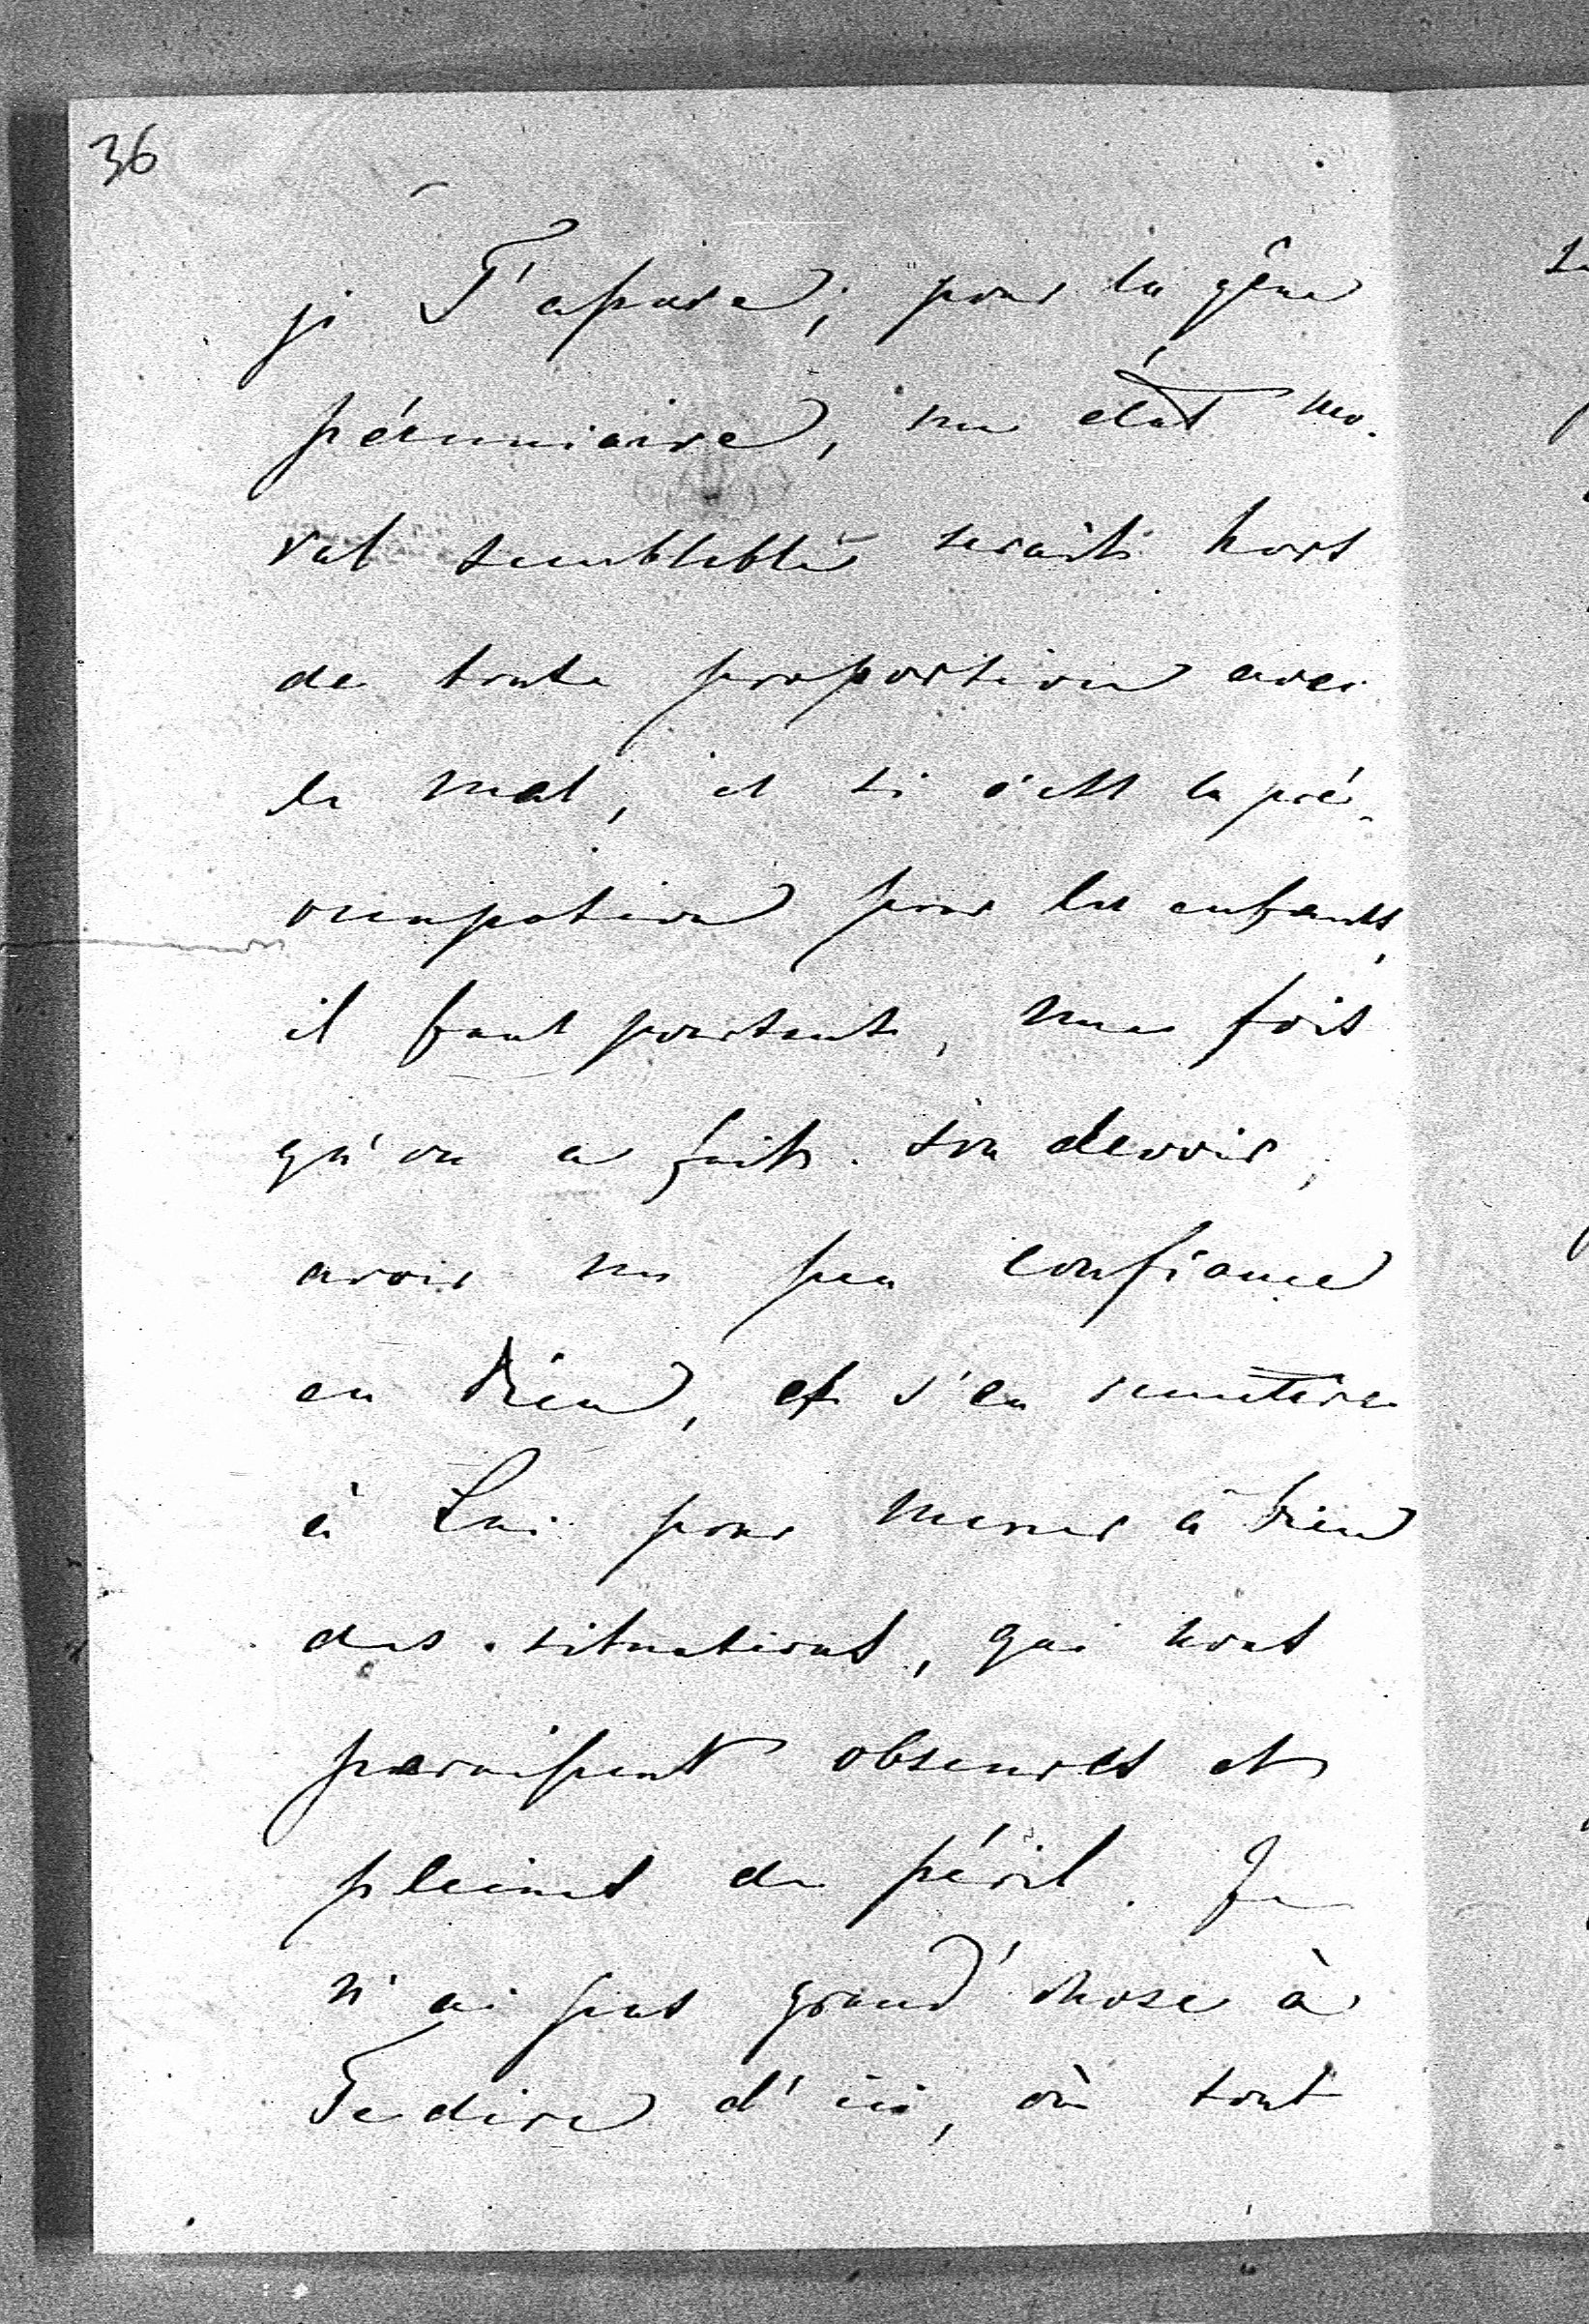 36
je T'assure; pour la gêne
pécuniaire, un état mo-
ral semblable serait hors
de toute proportion avec
le mal, et si c'est la pré-
occupation pour les enfants,
il faut pourtant, une fois
qu'on a fait son devoir,
avoir un peu confiance
en Dieu, et s'en remettre
à Lui pour mener à bien
des situations, qui nous
paraissent obscures et
pleines de péril. Je
n'ai pas grand' chose à
Te dire d'ici, où tout